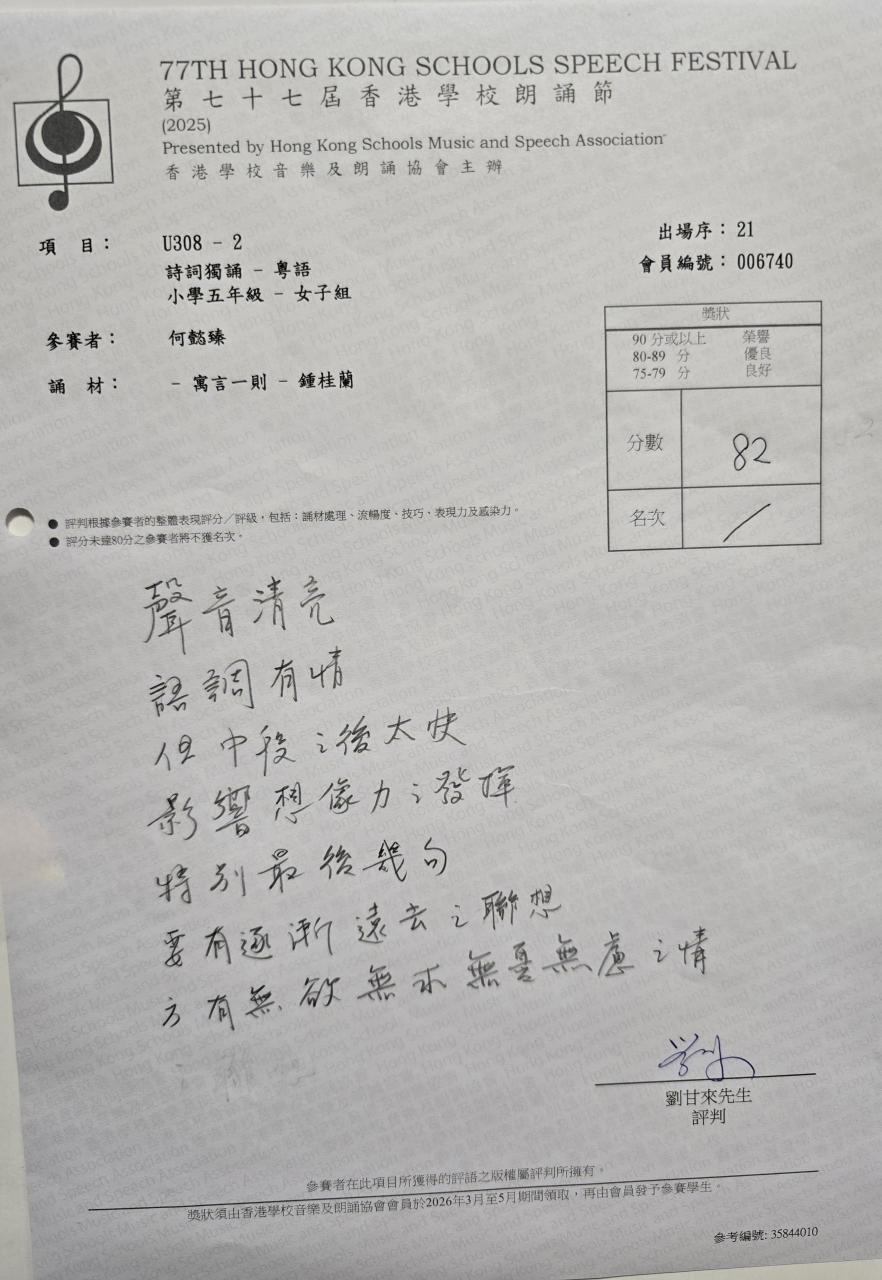 77TH HONG KONG SCHOOLS SPEECH FESTIVAL
第七十七屆香港學校朗誦節
(2025)
Presented by Hong Kong Schools Music and Speech Association
香港學校音樂及朗誦協會主辦
項 目： U308 - 2
出場序： 21
詩詞獨誦 - 粵語
會員編號： 006740
小學五年級 - 女子組
參賽者： 何懿臻
誦 材： - 寓言一則 - 鍾桂蘭
獎狀
90 分或以上 榮譽
80-89 分 優良
75-79 分 良好
分數 82
名次 /
● 評判根據參賽者的整體表現評分／評級，包括：誦材處理、流暢度、技巧、表現力及感染力。
● 評分未達80分之參賽者將不獲名次。
聲音清亮
語調有情
但中段之後太快
影響想像力之發揮
特別最後幾句
要有逐漸遠去之聯想
方有無欲無求無憂無慮之情
劉甘來先生
評判
參賽者在此項目所獲得的評語之版權屬評判所擁有。
獎狀須由香港學校音樂及朗誦協會會員於2026年3月至5月期間領取，再由會員發予參賽學生。
參考編號: 35844010